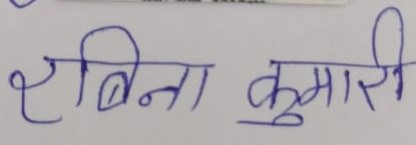 रबिना कुमारी